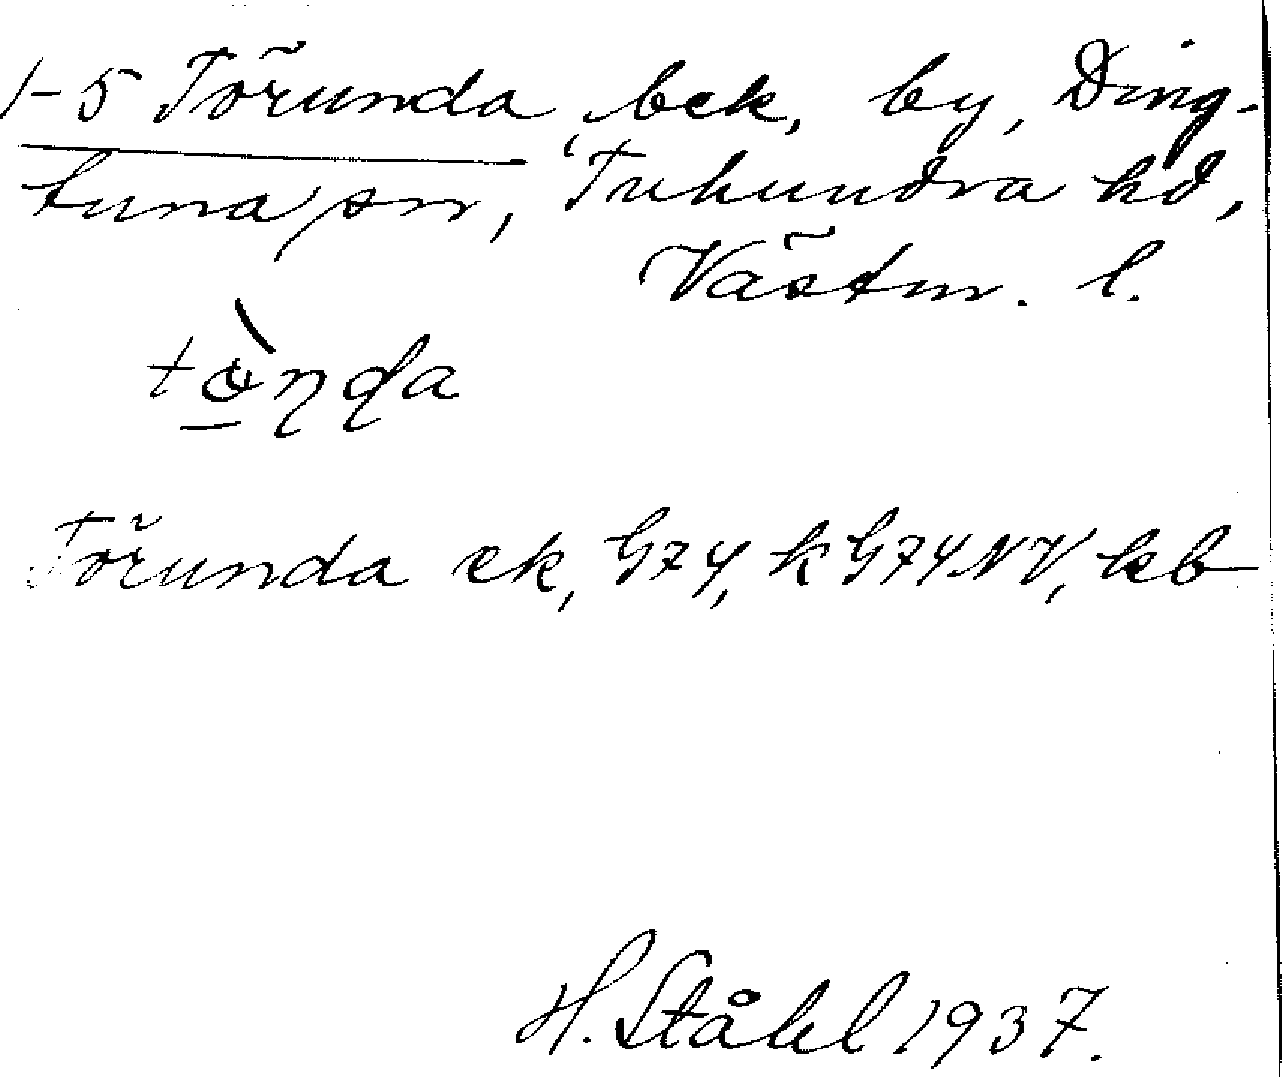 1-5 Törunda, bek, by, Ding-
tuna sn, Tuhundra hd,
Västm. l.
Törunda ek, G74, k G74NV, kb
H. Ståhl 1937.